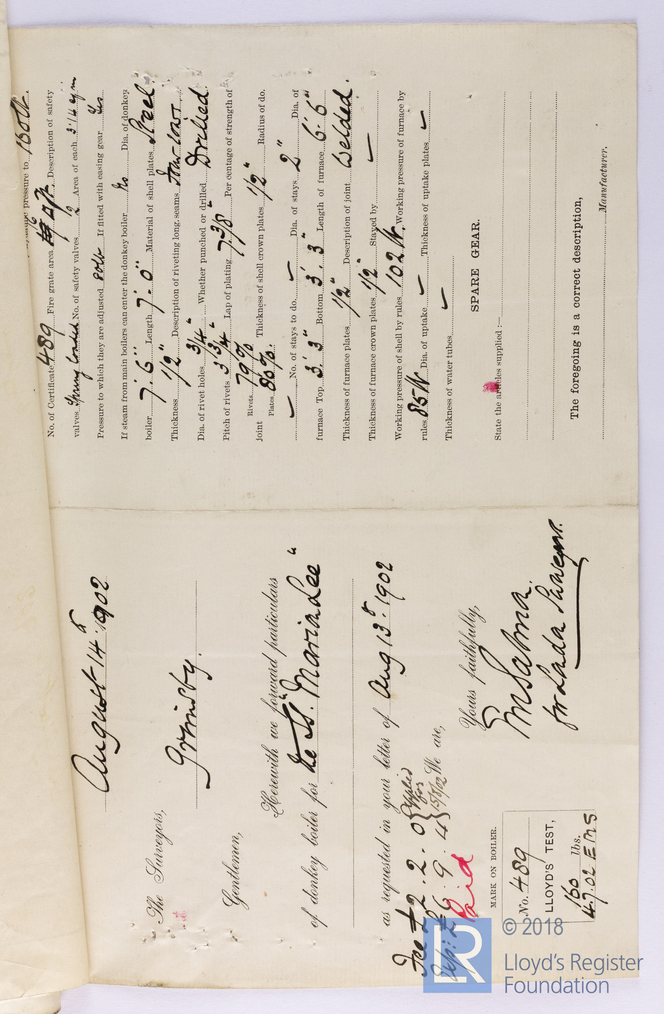 August 14th 1902
The Surveyors,
Grimsby.
Gentlemen,
Herewith we forward particulars
of donkey boiler for the "Maria Lee"
as requested in your letter of Aug 13th 1902
Fee £2. 2. 0 Applied for
£ 6. 9. 4 We are,
Paid
Yours faithfully,
for
MARK ON BOILER.
No. 489
LLOYD'S TEST,
160 lbs.
4.7.02 E.M.S
pressure to 160 lb.
No. of Certificate 489 Fire grate area Description of safety
valves Spring Loaded No. of safety valves 2 Area of each 3.14
Pressure to which they are adjusted 80 lb If fitted with easing gear Yes
If steam from main boilers can enter the donkey boiler No Dia. of donkey
boiler 7'. 6" Length 7'. 0" Material of shell plates Steel
Thickness 1/2" Description of riveting long. seams
Dia. of rivet holes 3/4" Whether punched or drilled Drilled.
Pitch of rivets 3 3/4" Lap of plating 7 3/8" Per centage of strength of
joint Rivets 79% Plates 80%. Thickness of shell crown plates 1/2" Radius of do.
No. of stays to do. Dia. of stays 2" Dia. of
furnace Top 3'. 3" Bottom 3'. 3" Length of furnace 6'. 6"
Thickness of furnace plates 1/2" Description of joint Welded.
Thickness of furnace crown plates 1/2" Stayed by
Working pressure of shell by rules 102 lb. Working pressure of furnace by
rules 85 lb Dia. of uptake Thickness of uptake plates
Thickness of water tubes
SPARE GEAR.
State the articles supplied:—
The foregoing is a correct description,
Manufacturer.
LR
© 2018
Lloyd's Register
Foundation